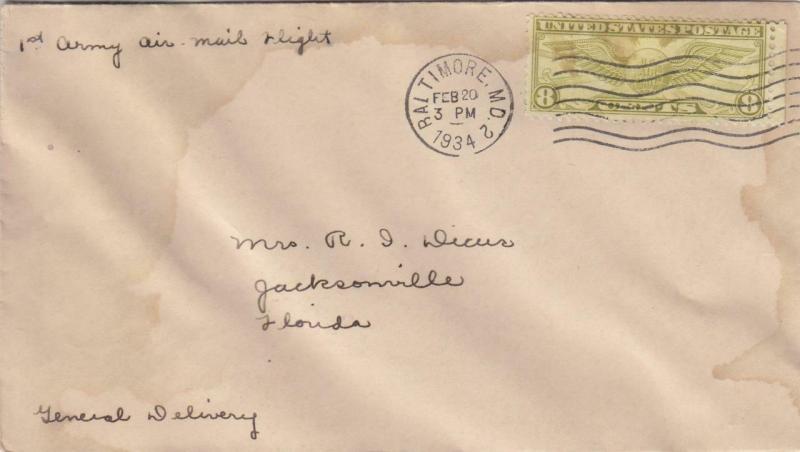 1st Army Air-Mail Flight
UNITED STATES POSTAGE
8 8
BALTIMORE, MD. 2
FEB 20
3 PM
1934
Mrs. R. I. Dicus
Jacksonville
Florida
General Delivery